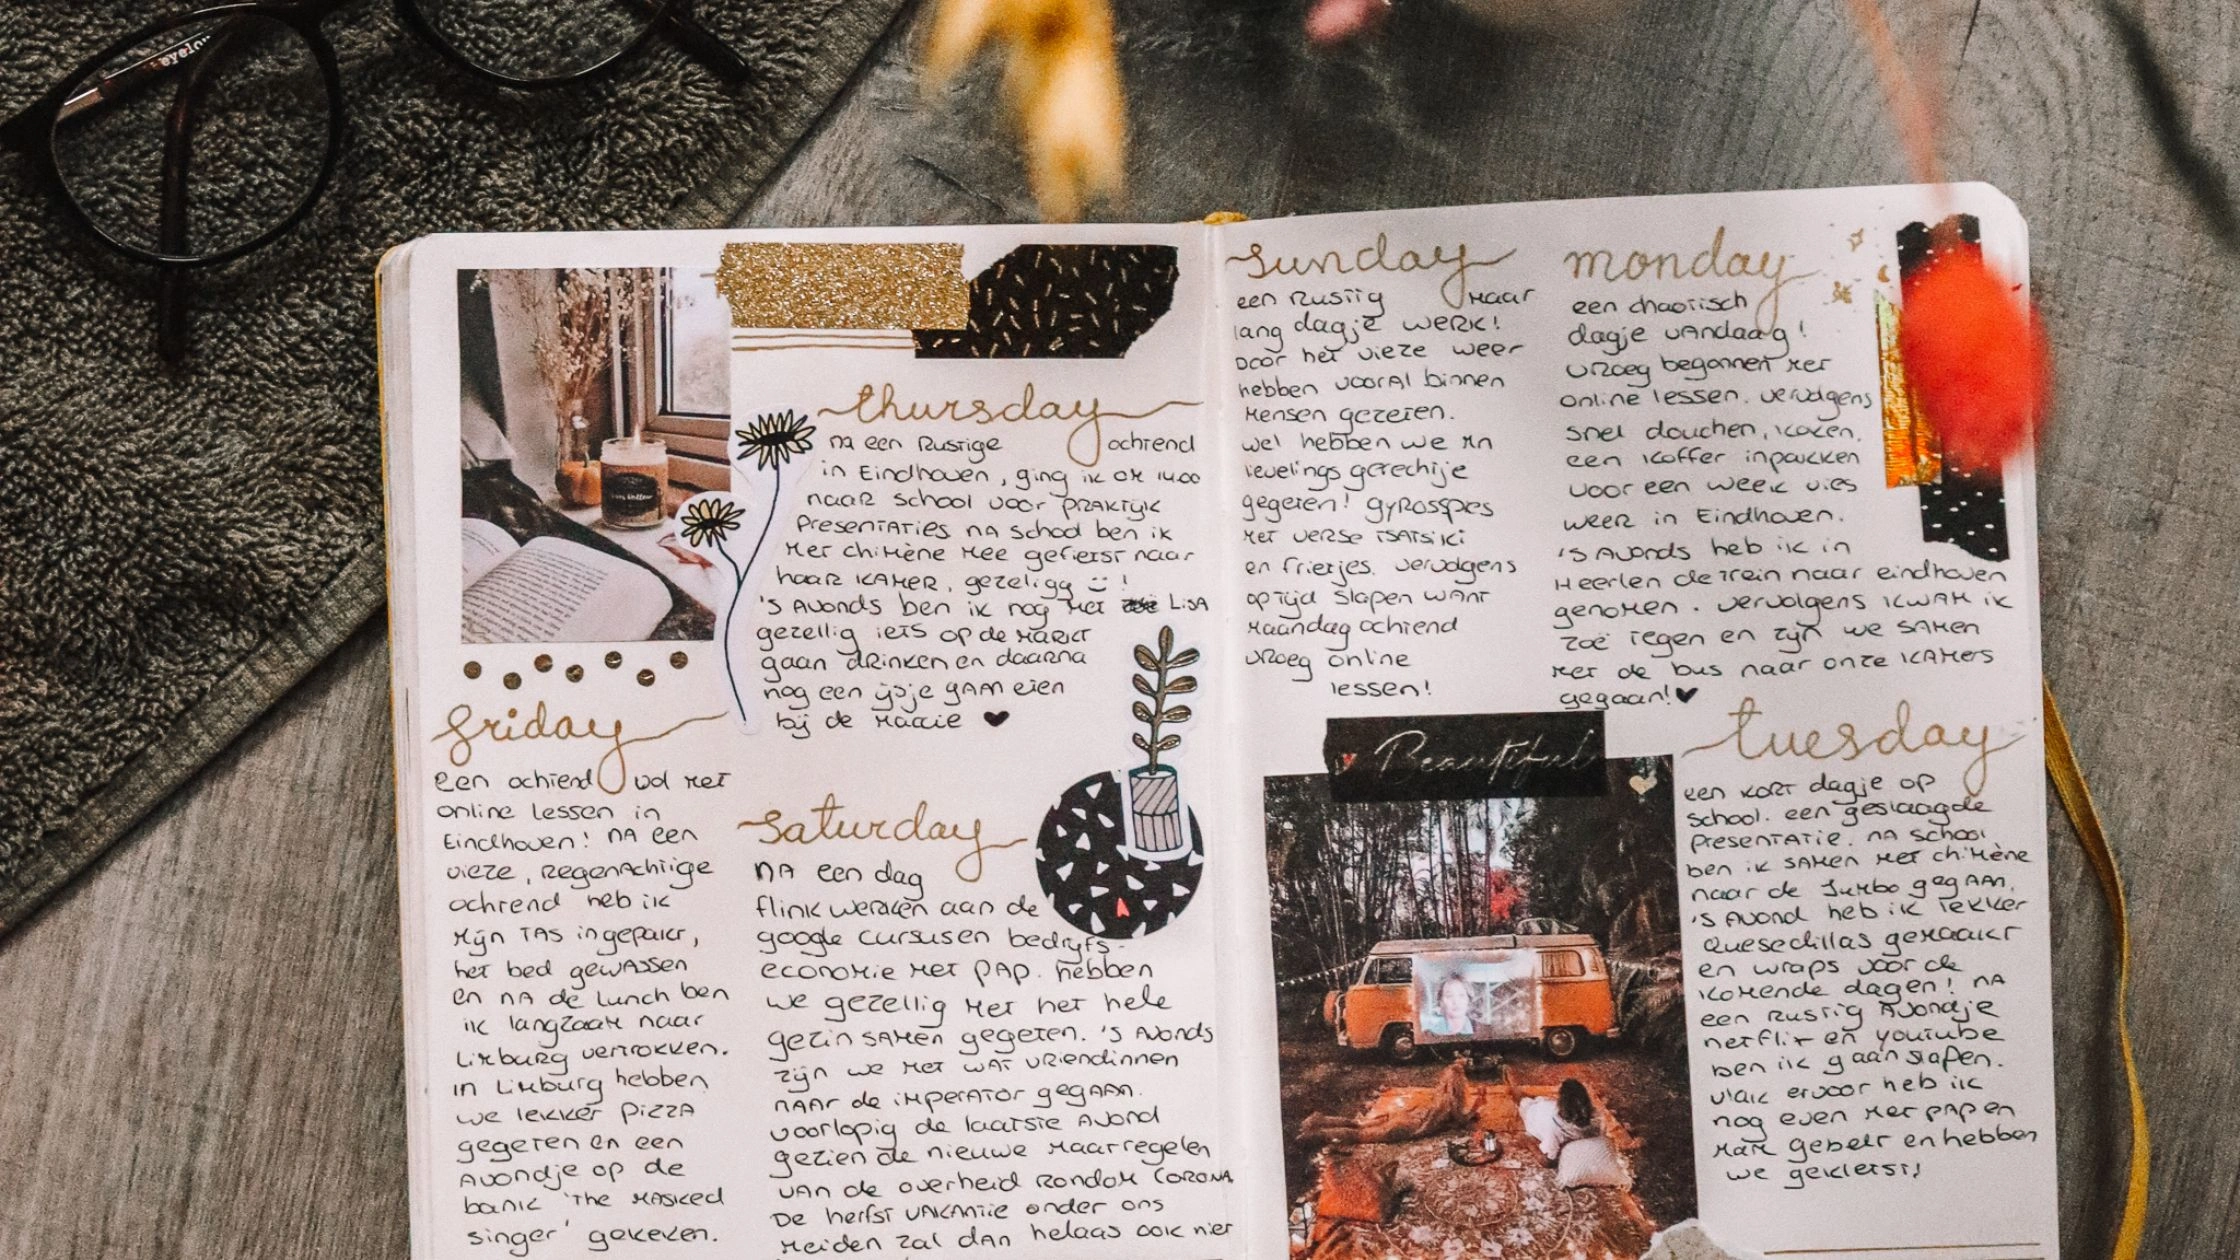 eyelo
thursday
na een rustige ochtend
in Eindhoven, ging ik om 14.00
naar school voor praktijk
presentaties na school ben ik
met chimène mee gefietst naar
haar kamer, gezeligg !
's avonds ben ik nog met Lisa
gezellig iets op de markt
gaan drinken en daarna
nog een ijsje gaan eten
bij de
friday
een ochtend vol met
online lessen in
Eindhoven! na een
vieze, regenachtige
ochtend heb ik
mijn tas ingepakt,
het bed gewassen
en na de lunch ben
ik langzaam naar
Limburg vertrokken.
in Limburg hebben
we lekker pizza
gegeten en een
avondje op de
bank 'the masked
singer' gekeken.
saturday
na een dag
flink werken aan de
google cursusen bedrijfs-
economie met pap. hebben
we gezellig met het hele
gezin samen gegeten. 's avonds
zijn we met wat vriendinnen
naar de imperator gegaan.
voorlopig de laatste avond
gezien de nieuwe maatregelen
van de overheid rondom corona.
De herfst vakantie onder ons
meiden zal dan helaas ook niet
sunday
een rustig maar
lang dagje werk!
Door het vieze weer
hebben vooral binnen
mensen gezeten.
wel hebben we mn
lievelings gerechtje
gegeten! gyrosspies
met verse tsatsiki
en frietjes. vervolgens
op tijd slapen want
maandag ochtend
vroeg online
lessen!
monday
een chaotisch
dagje vandaag!
vroeg begonnen met
online lessen. vervolgens
snel douchen, koken,
een koffer inpakken
voor een week vies
weer in Eindhoven.
's avonds heb ik in
Heerlen de trein naar eindhoven
genomen. vervolgens kwam ik
zoë tegen en zijn we samen
met de bus naar onze kamers
gegaan!
Beautiful
tuesday
een kort dagje op
school. een geslaagde
presentatie. na school
ben ik samen met chimène
naar de Jumbo gegaan.
's avond heb ik lekker
quesedillas gemaakt
en wraps voor de
komende dagen! na
een rustig avondje
netflix en youtube
ben ik gaan slapen.
vlak ervoor heb ik
nog even met pap en
mam gebelt en hebben
we gekletst!